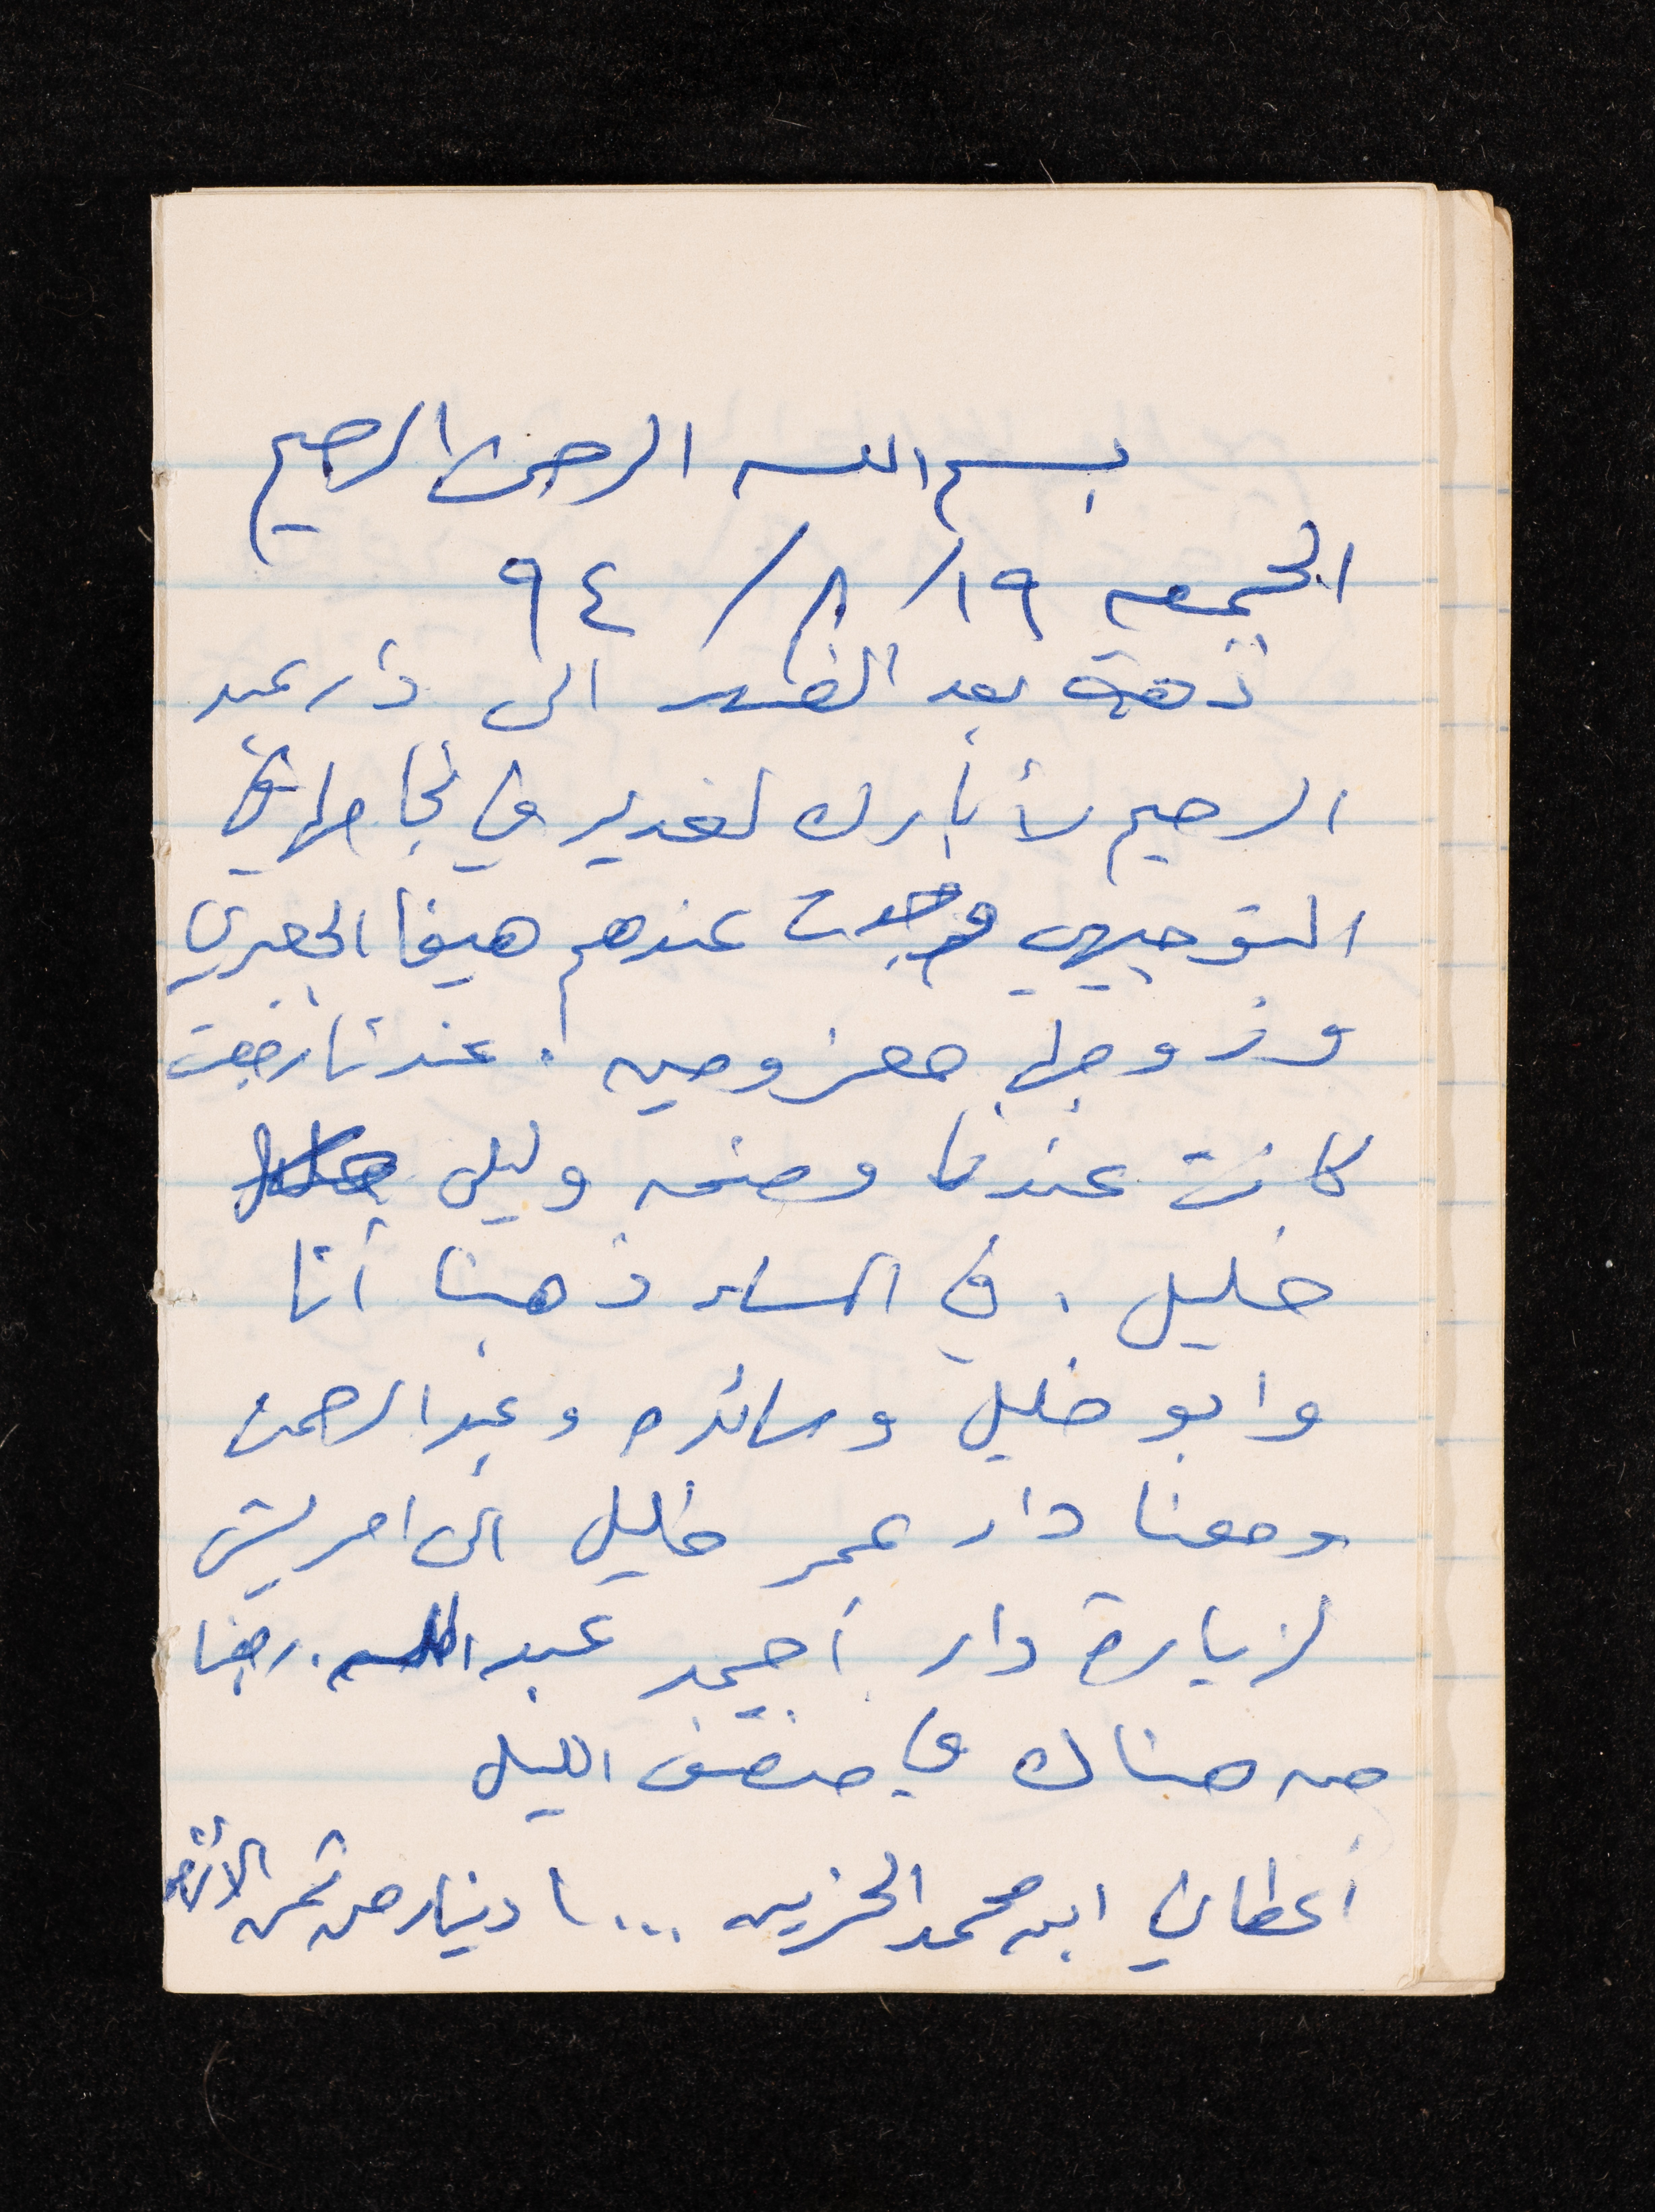 بسم الله الرحمن الرحيم
الجمعه ١٩/ ٨/ ٩٤
ذهبت بعد الظهر الى دار عبد
الرحيم لأبارك لغدير في نجاحها في
التوجيهي وجدت عندهم هيفا الجعبري
وزوجها معزومين. عندنا رجعت
كانت عندنا وليلى
خليل. في المساء ذهبنا أنا
وابو خليل وسائده وعبد الرحمن
ومعنا دار عمر خليل الى امريش
لزيارة دار أحمد عبد الله. رجعنا
من هناك في منتصف الليل
أعطاني ابن محمد الحزين ١٠٠٠ دينار من ثمن الأرض